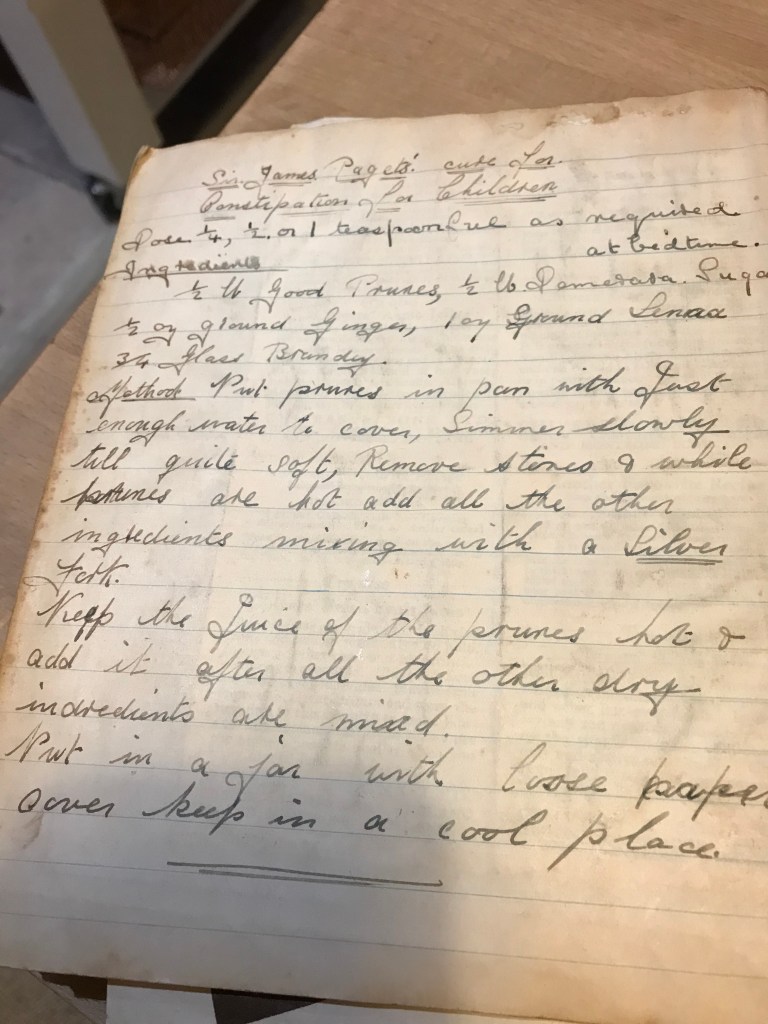 Sir James Pagets' cure for
Constipation for Children
Dose ¼, ½ or 1 teaspoonful as required
at bedtime.
Ingredients
½ lb Good Prunes, ½ lb Demerara Suga
½ oz ground Ginger, 1 oz Ground Senna
3/4 Glass Brandy.
Method Put prunes in pan with Just
enough water to cover, Simmer slowly
till quite soft, Remove stones & while
prunes are hot add all the other
ingredients mixing with a Silver
fork.
Keep the Juice of the prunes hot &
add it after all the other dry
indredients are mixed.
Put in a jar with loose paper
Cover keep in a cool place.